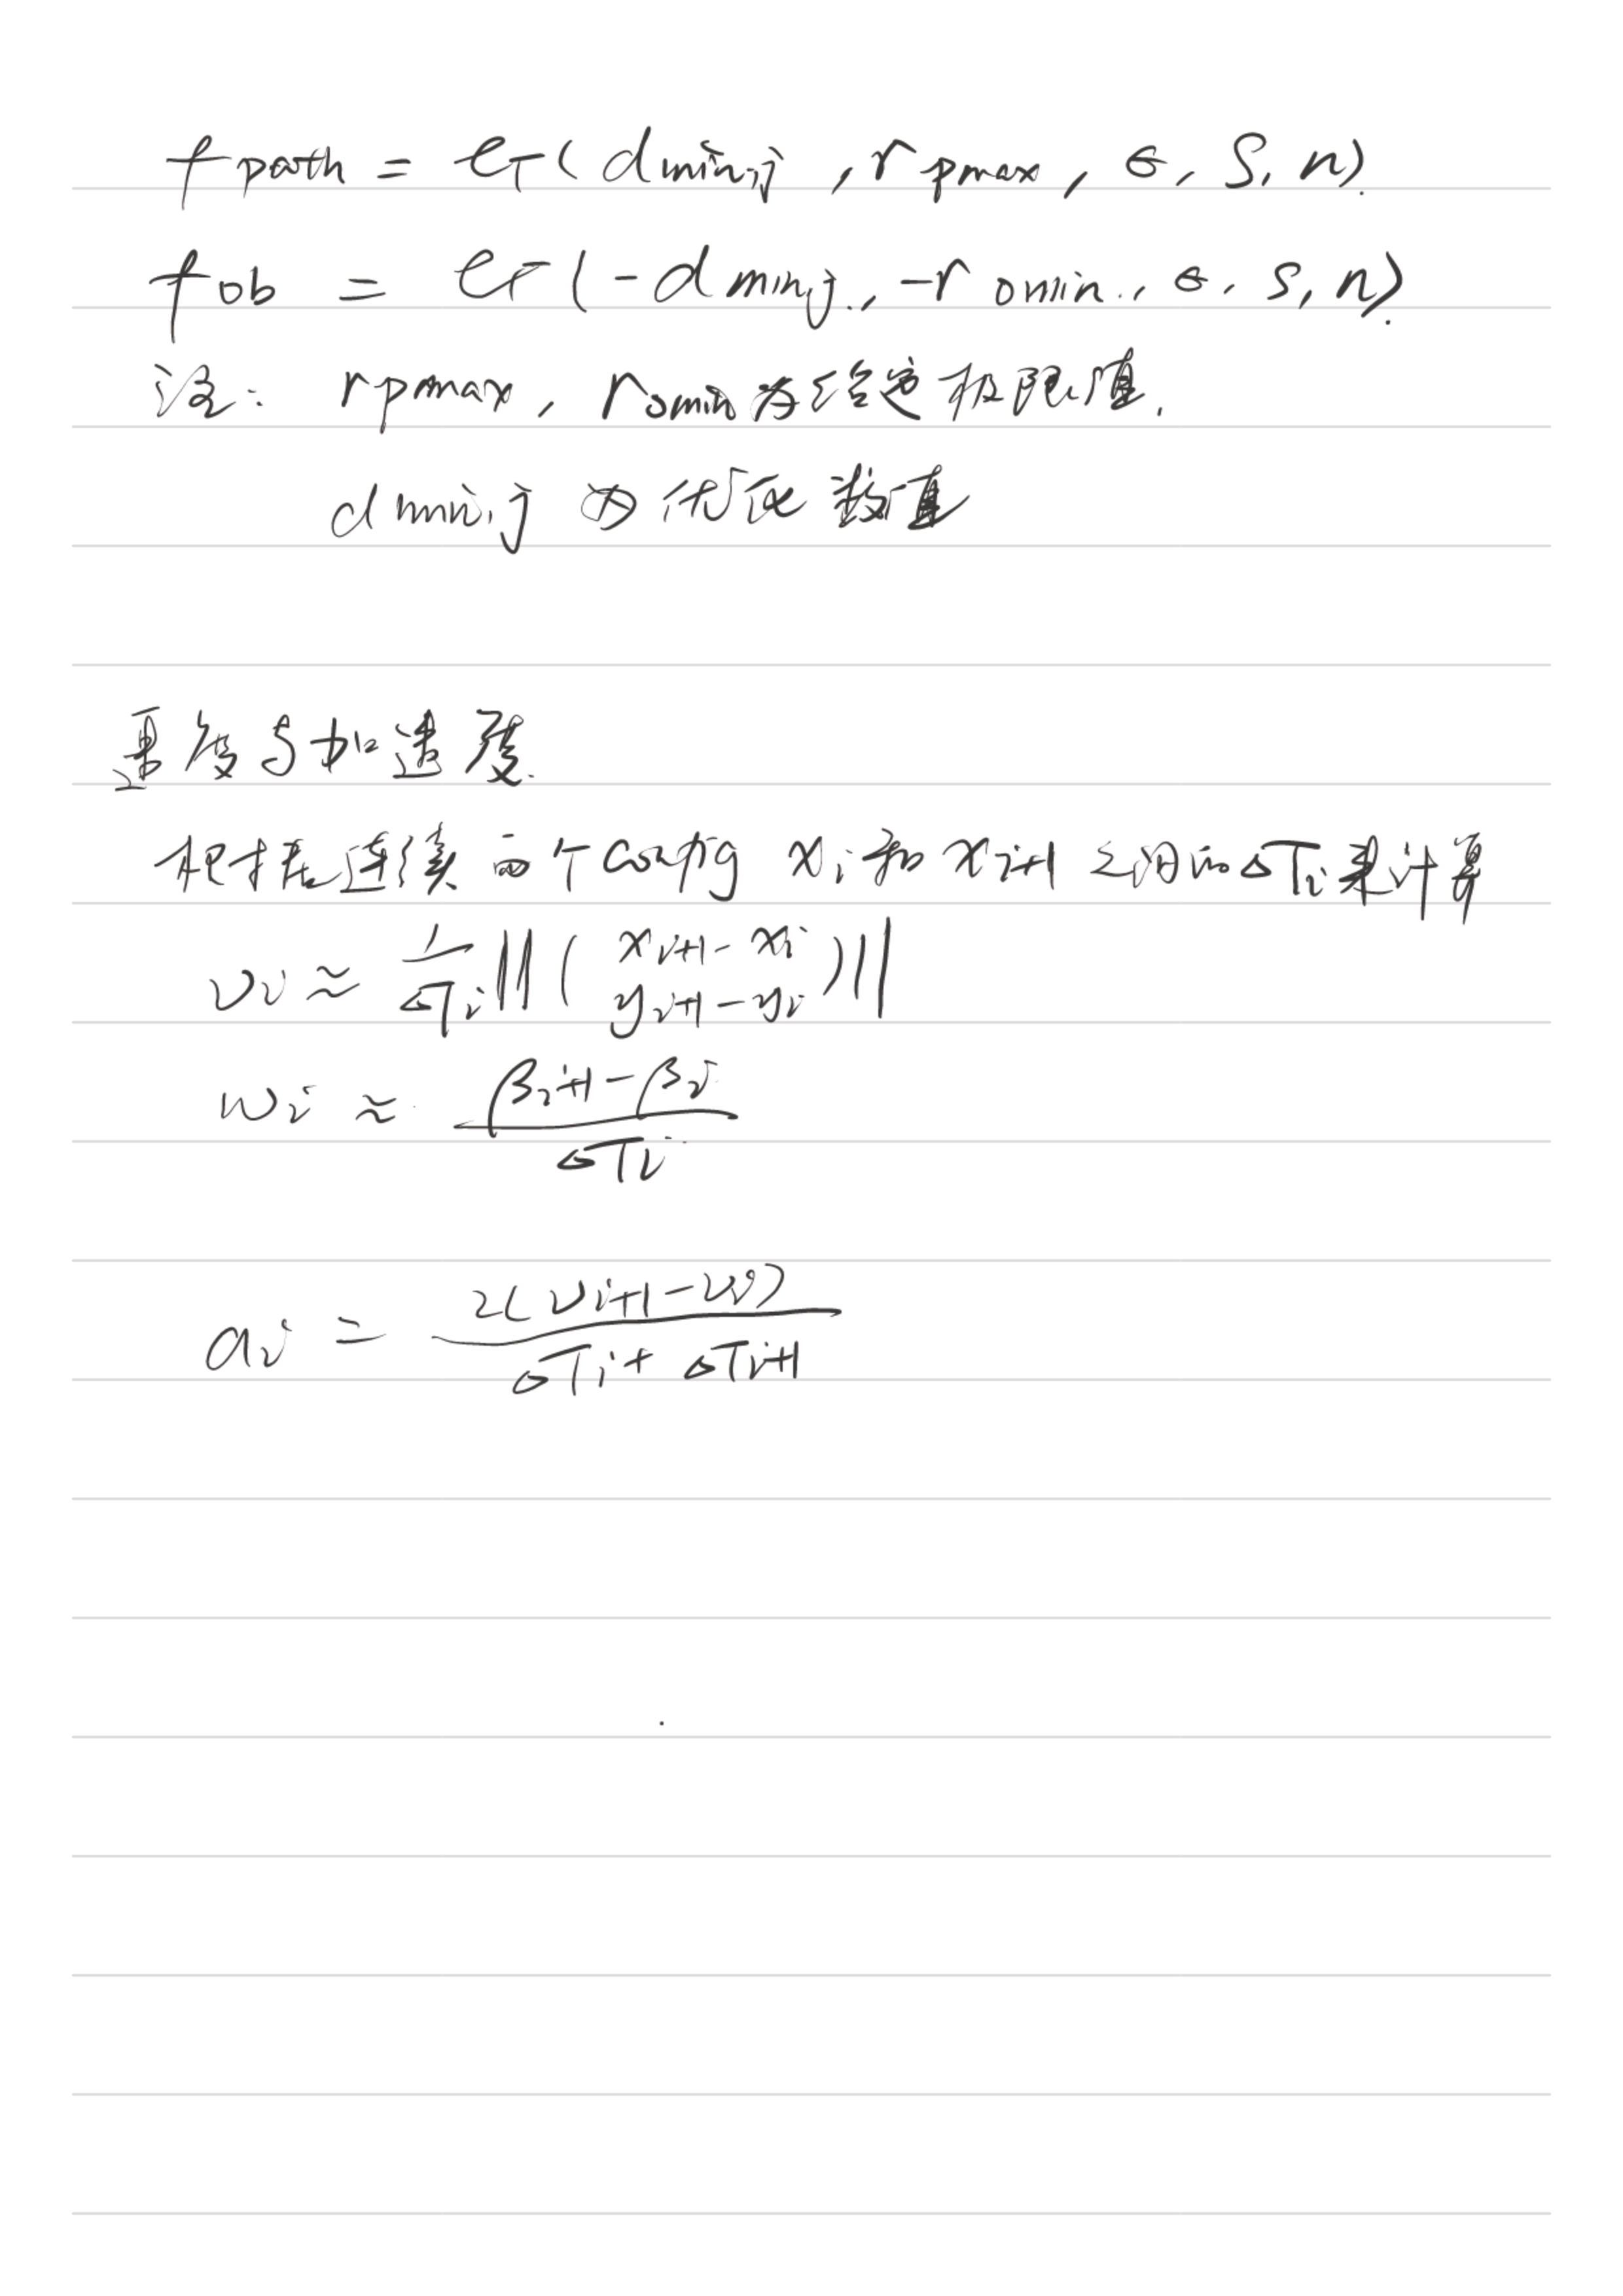 f path = eT ( d min,j , r pmax , ε, S, n ).
f ob = eT ( -d min,j , -r omin , ε, S, n ).
注: rpmax, romin为给定极限值.
dmin,j 为优化数值
速度与加速度.
根据连续两个config xi和 xi+1 之间的△Ti来计算
vi ≈ 1/△Ti ||( xi+1 - xi
yi+1 - yi )||
wi ≈ (βi+1 - βi) / △Ti
ai = 2(vi+1 - vi) / △Ti + △Ti+1